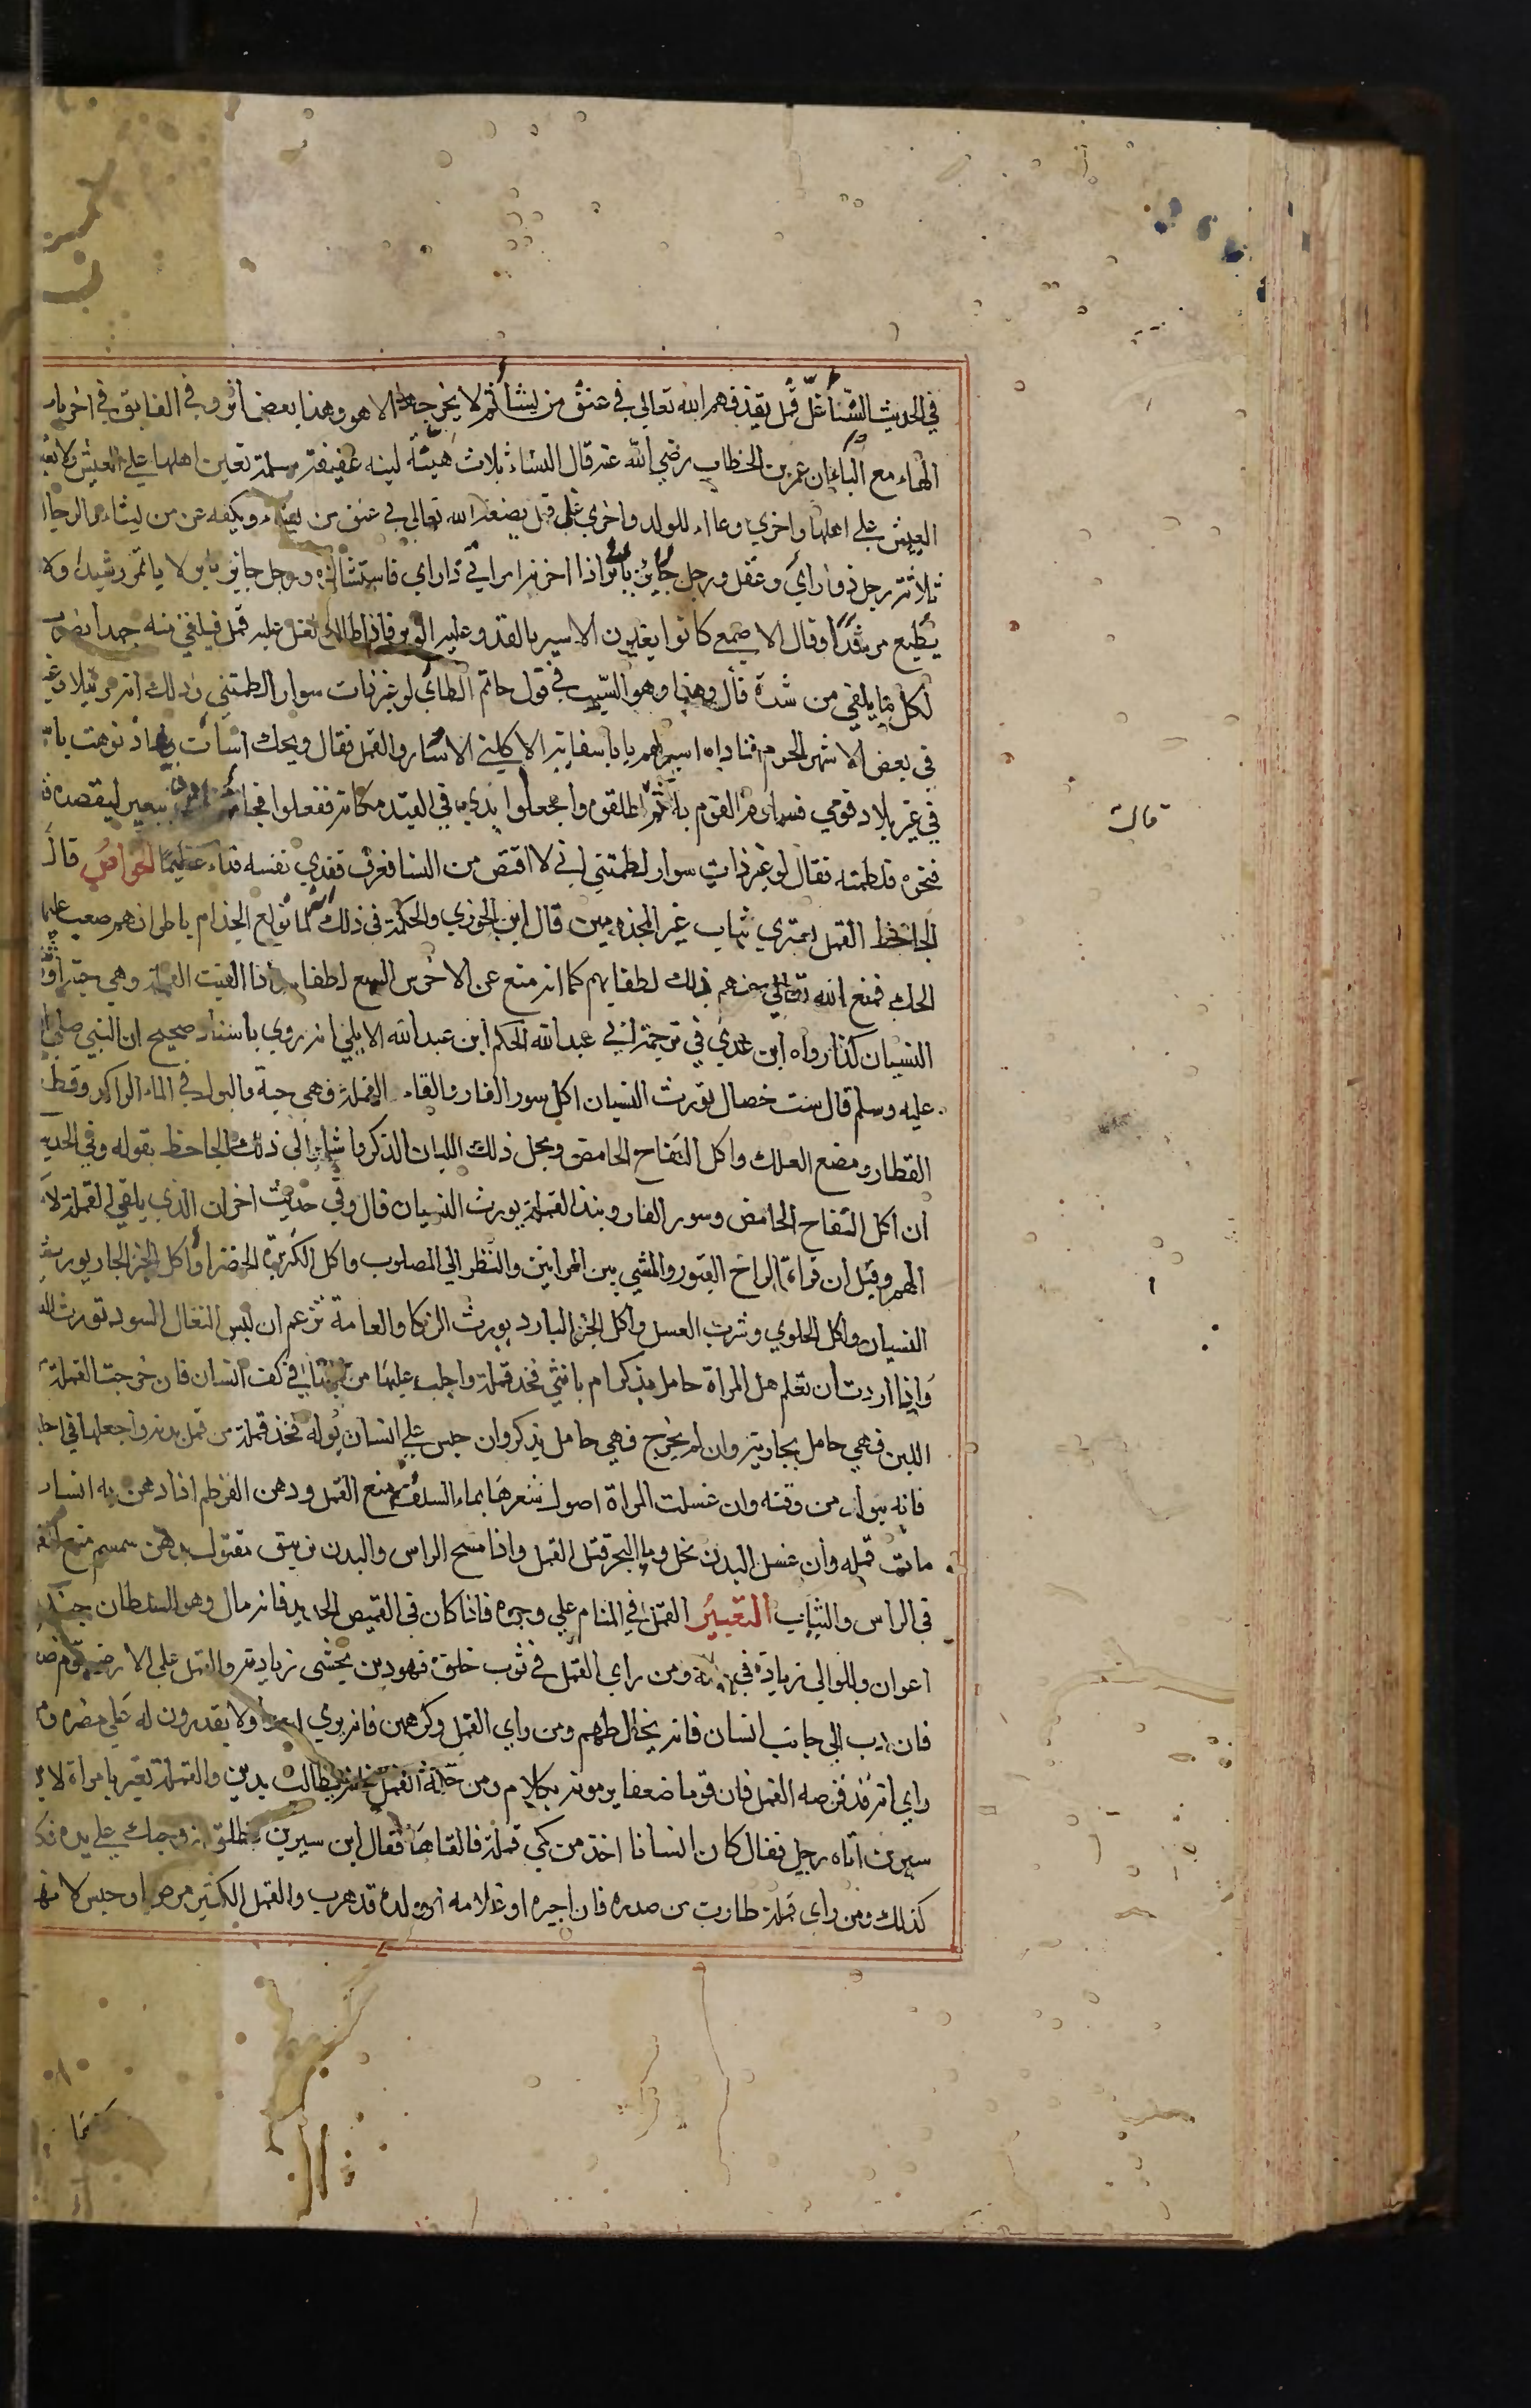 في الحديث النسا غل قمل يقذفهم الله تعالي في عنق من يشا ثم لا يخرجه الا هو وهذا بعض اثر وفي الفايق في اخر باب
الهاء مع الياء ان عمر بن الخطاب رضي الله عنه قال النساء ثلاث هينة لينه عفيفة مسلمة تعين اهلها علي العيش ولا تعين
العيش علي اهلها واخري وعاء للولد واخري غل قمل يضعه الله تعالي في عنق من يشاء ويكفه عن من يشاء والرجال
ثلاثة رجل ذو راي وعقل ورجل حاير باير اذا اخر به امر اتي ذا راي فاستشاره ورجل حاير باير لا ياتمر رشيدا ولا
يطيع مرشدا وقال الاصمعي كانوا يغلون الاسير بالقد وعليه الوبر فاذا طال الغل عليه قمل فيلقي منه جهدا يضرب
لكل ما يلقي من شدة قال وهذا وهو السبب في قول حاتم الطاي لو غير ذات سوار لطمتني وذلك انه مر ببلاد
في بعض الاشهر الحرم فناداه اسير لهم يا با سفانة الا كلني الاسار والقمل فقال ويحك اسأت اذ نوهت با
في غير بلاد قومي فساوم القوم به ثم اطلقوه واجعلوا يدي في القيد مكانه ففعلوا ببعير ليفصده
فنحره فلطمته فقال لو غير ذات سوار لطمتني اني لا اقتص من النسا فعرف ففدي نفسه فداء عظيما الخواص قال
الجاحظ القمل يعتري ثياب غير المجذومين قال ابن الجوزي والحكمة في ذلك لما تولع الجذام باطرافهم صعب عليهم
الحك فمنع الله تعالي عنهم ذلك لطفا بهم كما انه منع عن الاخرس السمع لطفا به واذا القيت القملة وهي حية اورث
النسيان كذا رواه ابن عدي في ترجمة ابي عبد الله الحكم ابن عبد الله الايلي انه روي باسناد صحيح ان النبي صلي ا
عليه وسلم قال ست خصال تورث النسيان اكل سور الفار والقاء القملة وهي حية والبول في الماء الراكد وقطع
القطار ومضغ العلك واكل التفاح الحامض ويحل ذلك اللبان الذكر واشار الي ذلك الجاحظ بقوله وفي الحديث
ان اكل التفاح الحامض وسور الفار ونبذ القملة يورث النسيان قال وفي حديث اخر ان الذي يلقي القملة لا
الهم وقيل ان قراءة الواح القبور والمشي بين المراتين والنظر الي المصلوب واكل الكزبرة الخضرا واكل الخبز الحار يورث
النسيان واكل الحلوي وشرب العسل واكل الخبز البارد يورث الذكا والعامة تزعم ان لبس النعال السود تورث
واذا اردت ان تعلم هل المراة حامل بذكر ام بانثي فخذ قملة واحلب عليها من لبنها في كف انسان فان خرجت القملة
اللبن فهي حامل بجارية وان لم يخرج فهي حامل بذكر وان حبس علي انسان بوله فخذ قملة من قمل بدنه واجعلها في احليله
فانه يبول من وقته وان غسلت المراة اصول شعرها بماء السلق منع القمل ودهن القرطم اذا دهن به انسان
مات قمله وان غسل البدن بخل وما البحر قتل القمل واذا مسح الراس والبدن بزيبق مقتول بدهن سمسم منع القمل
في الراس والثياب التعبير القمل في المنام علي وجوه فاذا كان في القميص الجديد فانه مال وهو للسلطان جند
اعوان وللوالي زيادة في ماله ومن راي القمل في ثوب خلق فهو دين يخشي زيادته والقمل علي الارض قوم ضعاف
فان دب الي جانب انسان فانه يخالطهم ومن راي القمل وكرههن فانه يري اعداء ولا يقدرون له علي مضرة ومن
راي انه قد قرصه القمل فان قوما ضعفا يرمونه بكلام ومن حكه القمل فانه يطالب بدين والقملة تعبر بامراة لان ابن
سيرين اتاه رجل فقال كان انسانا اخذ من كمي قملة فالقاها فقال ابن سيرين تطلق زوجتك علي يده فكان
كذلك ومن راي قملة طارت من صدره فان اجيره او غلامه او ولده قد هرب والقمل الكثير مرض او حبس لانه
قالت